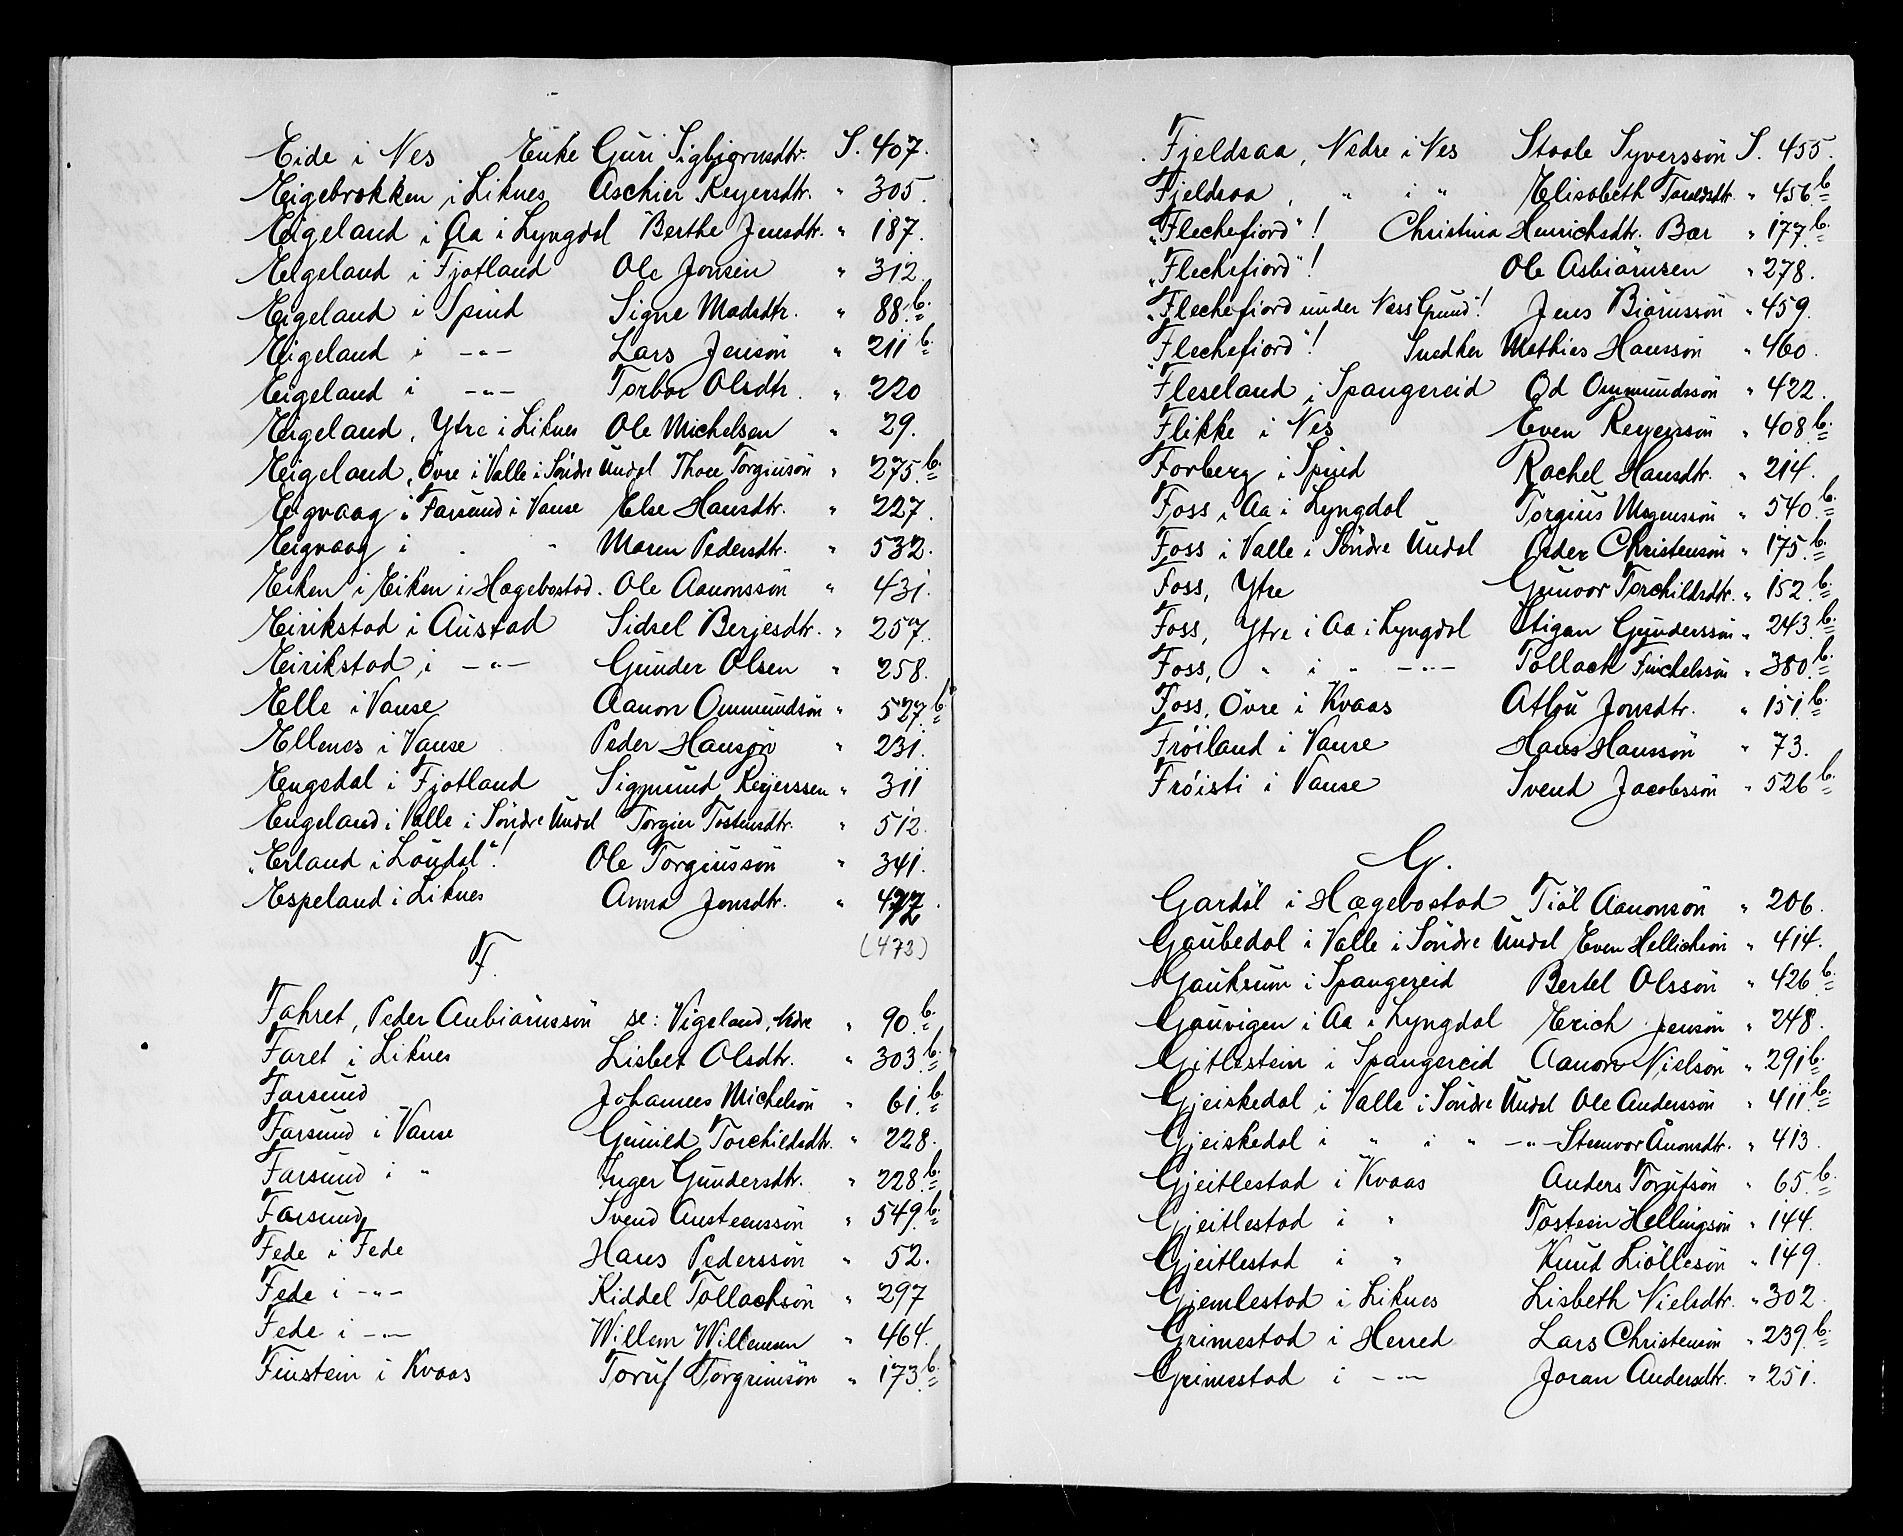 Eide i Nes Enke Guri Sigbjørnsdtr. S. 407.
Eigebrokken i Liknes Aschier Reyersdtr. " 305.
Eigeland i Aa i Lyngdal Berthe Jensdtr. " 187.
Eigeland i Fjotland Ole Jonsen " 312.
Eigeland i Spind Signe Madsdtr. " 88.b.
Eigeland i -"- Lars Jensön " 211 b.
Eigeland i -"- Torbor Olsdtr. " 220
Eigeland, Ytre i Liknes Ole Michelsen " 29.
Eigeland, Övre i Valle i Söndre Undal Thore Torgiusön " 275.b.
Eigvaag i Farsund i Vanse Else Hansdtr. " 227.
Eigvaag i " " Maren Pedersdtr. " 532.
Eiken i Eiken i Hægebostad. Ole Aanonssön " 431.
Eirikstad i Austad Sidsel Berjesdtr. " 257.
Eirikstad i -"- Gunder Olsen " 258.
Elle i Vanse Aanon Ommundsön " 527.b.
Ellenes i Vanse Peder Hansøn " 231.
Engedal i Fjotland Sigmund Reyerssen " 311
Engeland i Valle i Söndre Undal Torgier Tostensdtr. " 512.
"Erland i Löudal"! Ole Torgiussön " 341.
Espeland i Liknes Anna Jonsdtr. " 472.
(473)
F.
Fahret, Peder Anbiörnssön se: Vigeland, Ndre " 90.b.
Faret i Liknes Lisbet Olsdtr. " 303.b.
Farsund Johannes Michelsön " 61.b.
Farsund i Vanse Gunild Torchildsdtr. " 228.
Farsund i " Inger Gundersdtr. " 228.b.
Farsund Svend Austenssön " 549.b.
Fede i Fede Hans Pederssön " 52.
Fede i -"- Kiddel Tollachsön " 297
Fede i -"- Willem Willemsen " 464.
Finstein i Kvaas Toruf Torgrimsön " 173.b.
Fjeldsaa, Nedre i Nes Staale Syverssön S. 455.
Fjeldsaa, " i " Elisabeth Taraldsdtr. " 456.b.
"Flechefiord"! Christina Henrichsdtr. Bær " 177.b.
"Flechefiord"! Ole Asbiörnsen " 278.
"Flechefiord under Ness Grund"! Jens Biörnssön " 459.
"Flechefiord"! Snedker Mathies Hanssön " 460.
Fleseland i Spangereid Od Ommundssön " 422.
Flikke i Nes Even Reyerssön " 408.b.
Forberg i Spind Rachel Hansdtr. " 214.
Foss i Aa i Lyngdal Torgius Mogenssön " 540.b.
Foss i Valle i Söndre Undal Peder Christensön " 175.b.
Foss, Ytre Gunvor Torchildsdtr. " 152.b.
Foss, Ytre i Aa i Lyngdal Stigan Gunderssön " 243.b.
Foss, " i " -"- Tollach Finchelssön " 380.b.
Foss, Övre i Kvaas Atlou Jonsdtr. " 151.b.
Fröiland i Vanse Hans Hanssön " 73.
Fröisti i Vanse Svend Jacobssön " 526 b.
G.
Gardöl i Hægebostad Tiöl Aanonsön " 206.
Gaubedal i Valle i Söndre Undal Even Hellichsön " 414.
Gaukrum i Spangereid Bertel Olssön " 426 b.
Gauvigen i Aa i Lyngdal Erich Jensön " 248.
Gitlestein i Spangereid Aanon Nielsön " 291b.
Gjeiskedal i Valle i Söndre Undal Ole Anderssön " 411 b.
Gjeiskedal i " i " -"- Stenvor Anonsdtr. " 413.
Gjeitlestad i Kvaas Anders Torufsön " 65.b.
Gjeitlestad i " Tostein Hellingsön " 144.
Gjeitlestad i " Knud Liölleson " 149.
Gjemlestad i Liknes Lisbeth Nielsdtr. " 302.
Grimestad i Herred Lars Christensön " 239.b.
Grimestad i -"- Joran Andersdtr. " 251.